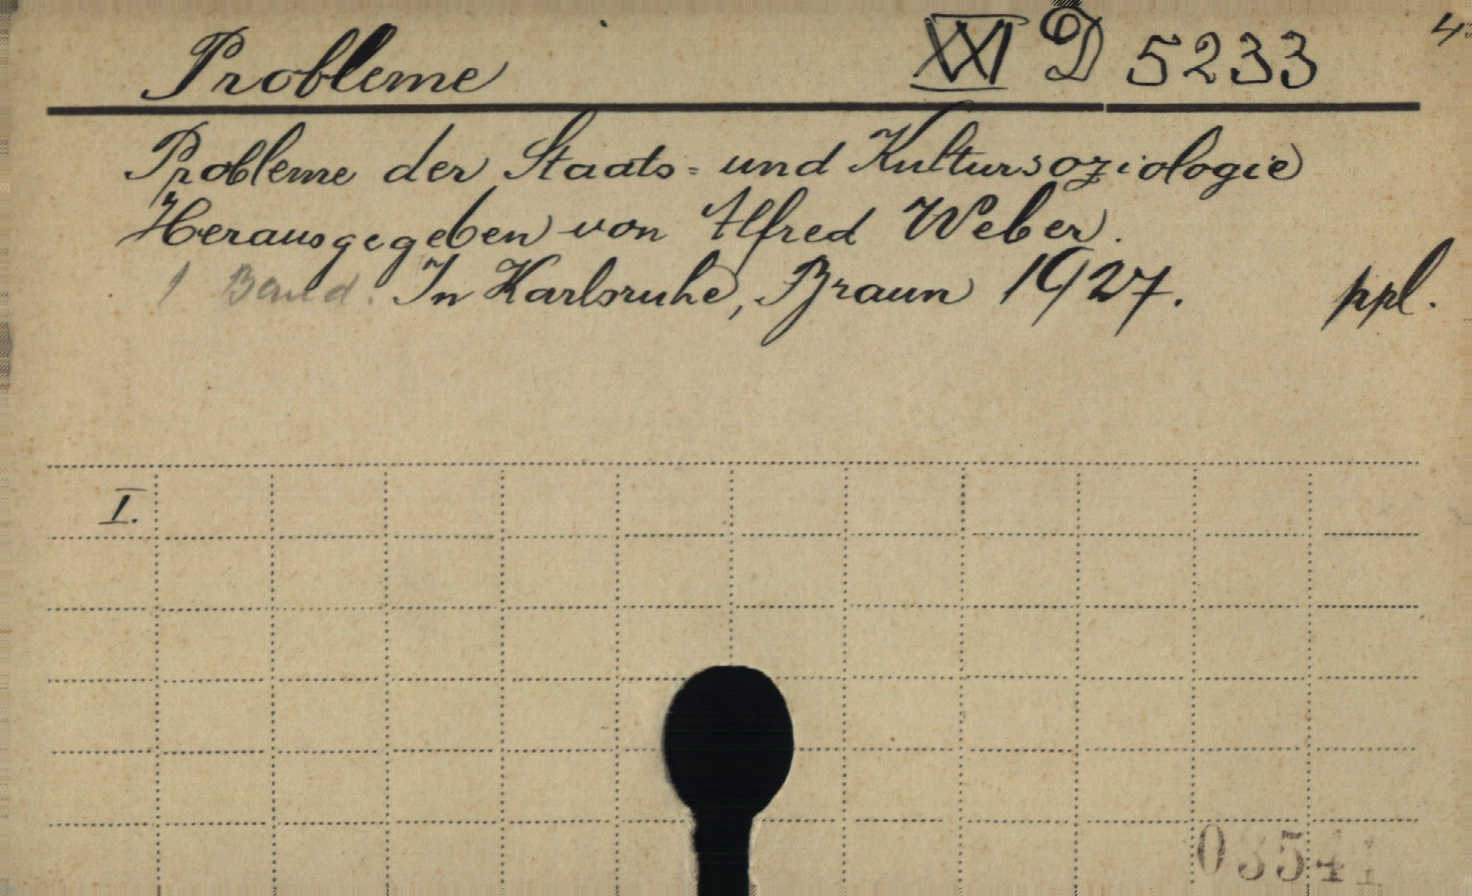 Probleme XXI D 5233 4
Probleme der Staats- und Kultursoziologie
Herausgegeben von Alfred Weber.
1 Band. In Karlsruhe, Braun 1927. ppl.
I.
03541